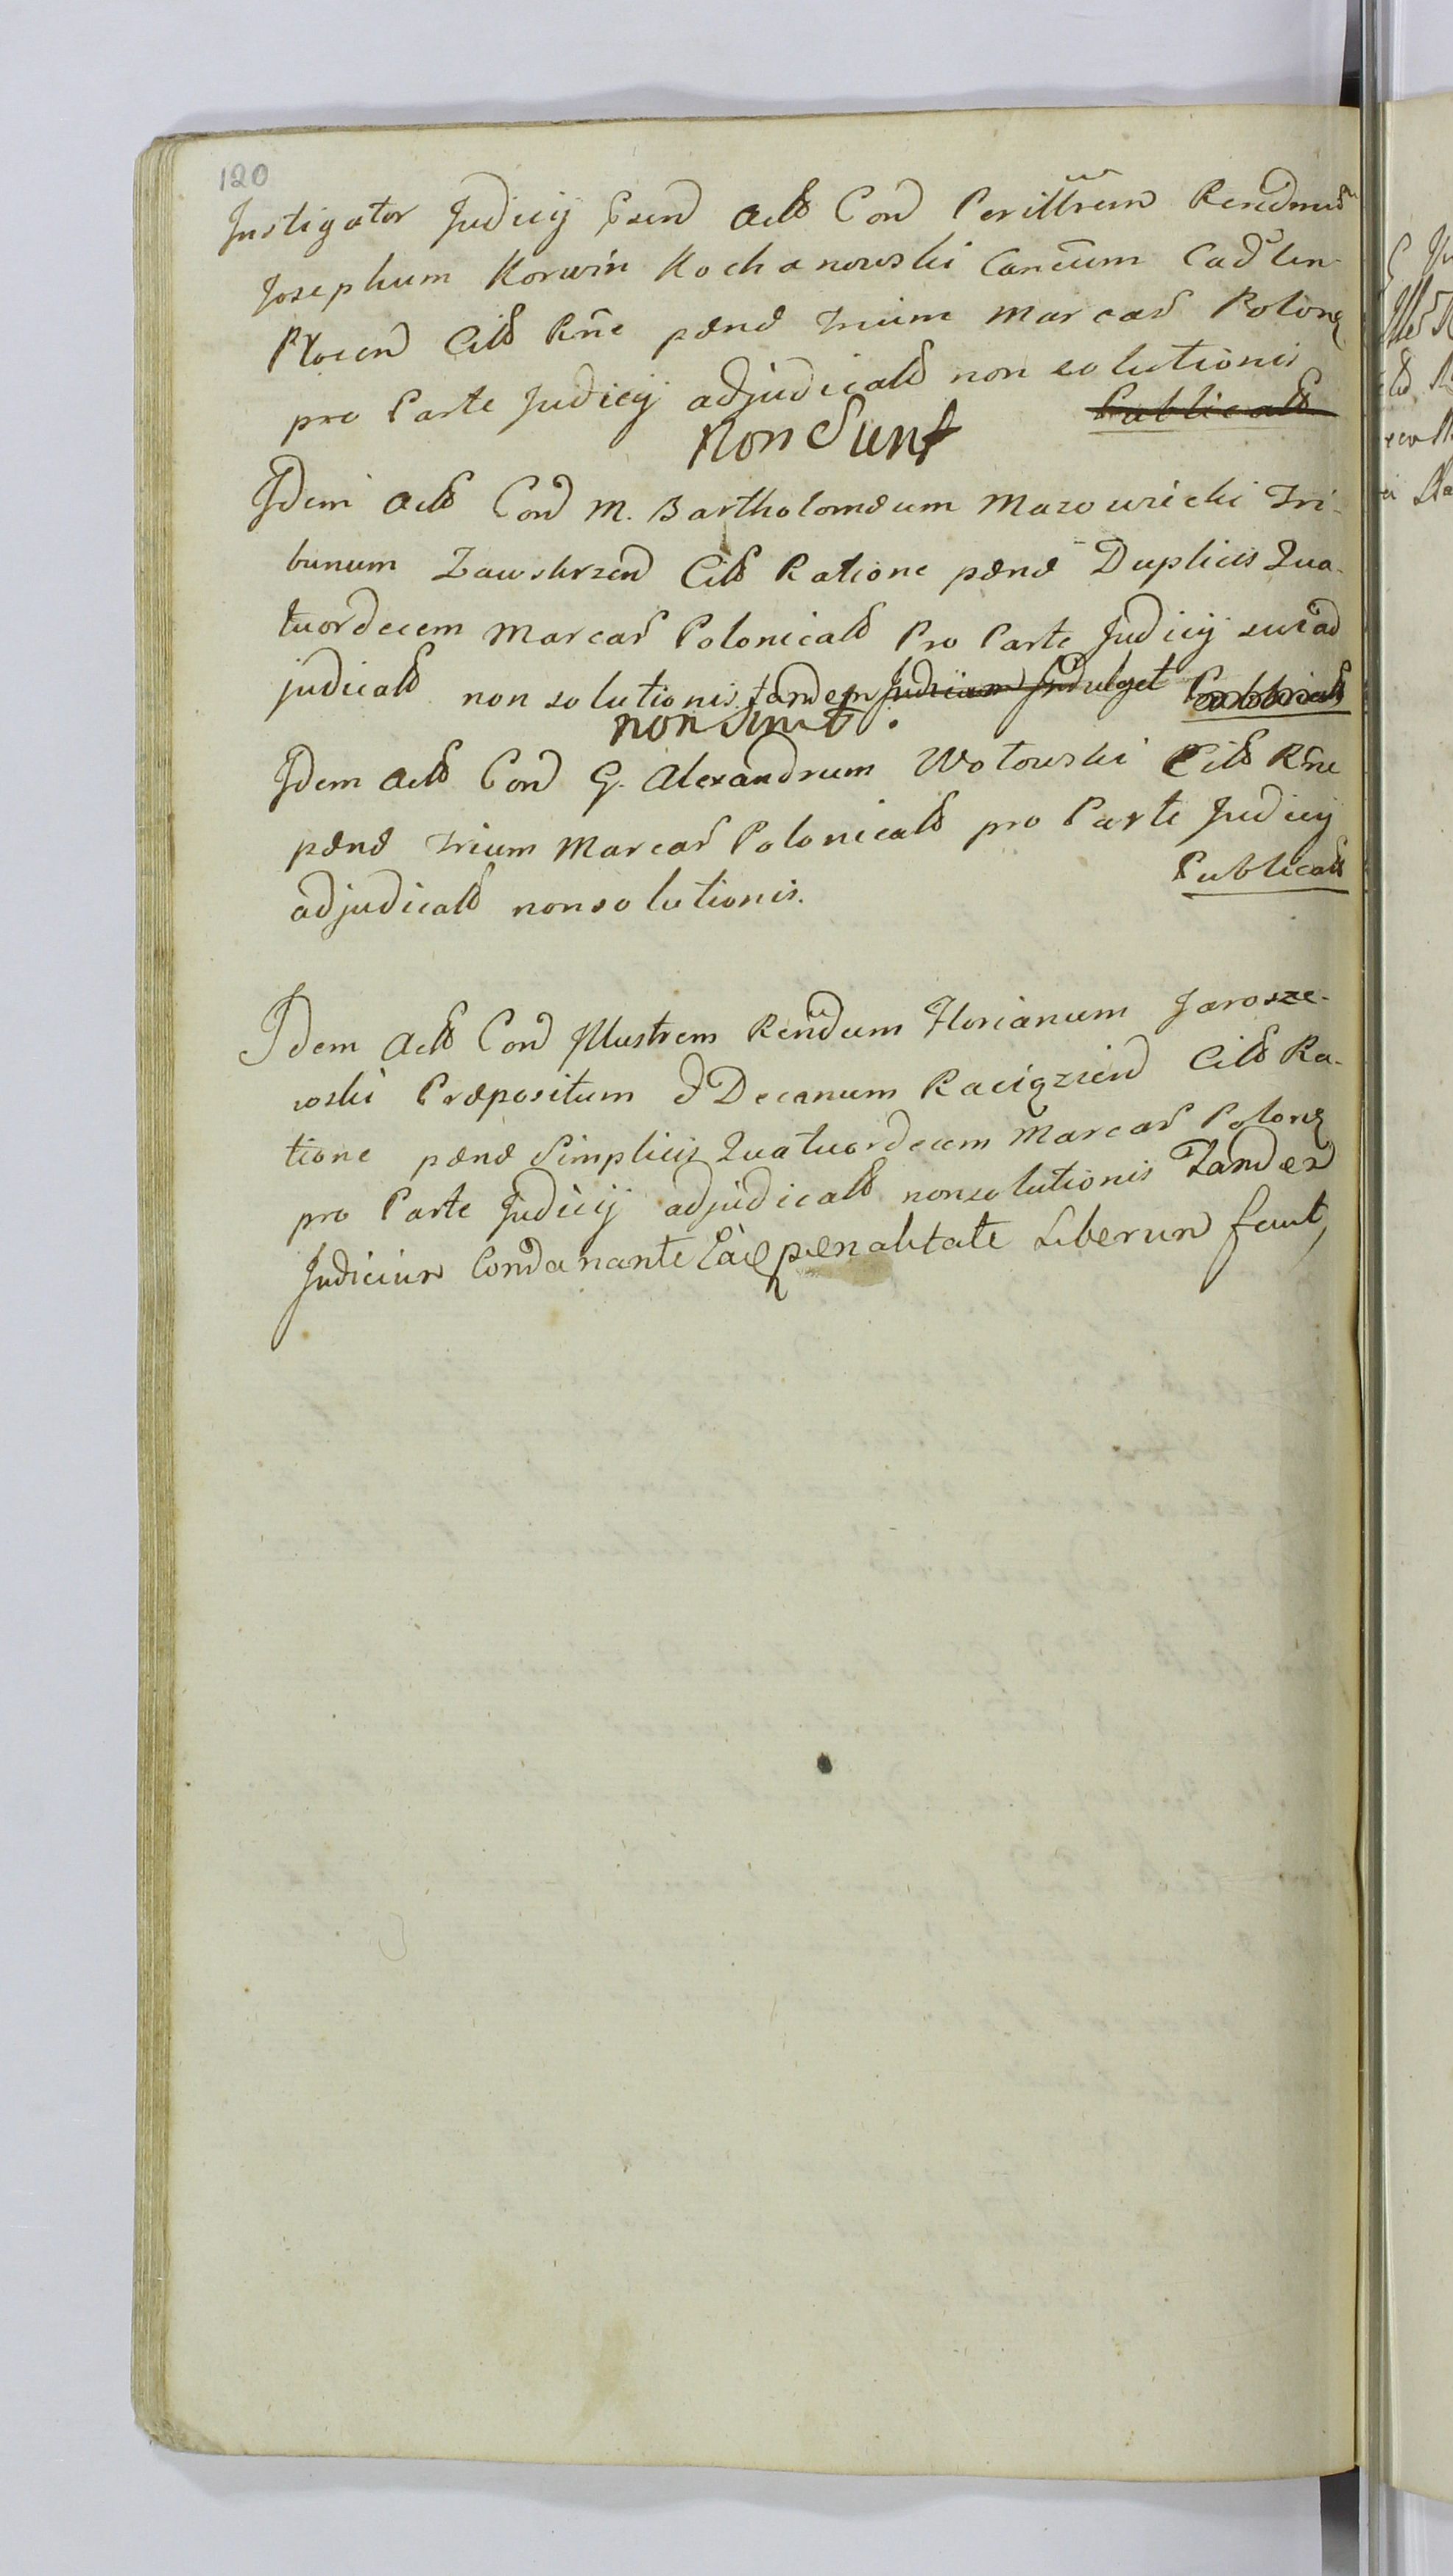 120
Instigator Judicij Psen Actt Con Perillrem Rendmu
Josephum Korwin Kochanowski Cancum Cadlen-
Plocen Citt Rne pænæ Trium Marcar Polon
pro Parte Judicij adjudicatt non solutionis
Publicatt
Non Sunt
Idem Actt Con M. Bartholomæum Mazowiecki Tri-
bunum Zawskrzen Citt Ratione pænæ Duplicis Qua-
tuordecem Marcar Polonicatt Pro Parte Judicij sui ad
judicatt non solutionis tandem Judicium Indulget Publicatt
non sunt.
Idem Actt Con G. Alexandrum Wotowski Citt Rne
pænæ Trium Marcar Polonicatt pro Parte Judicij
adjudicatt non solutionis. Publicatt
Idem Actt Con Illustrem Rendum Florianum Jarosze-
wski Præpositum & Decanum Raciązien Citt Ra-
tione pænæ Simplicis Quatuordecem Marcar Polon
pro Parte Judicij adjudicatt non solutionis Tandem
Judicium Condanante Pae pænalitate Liberum fecit,